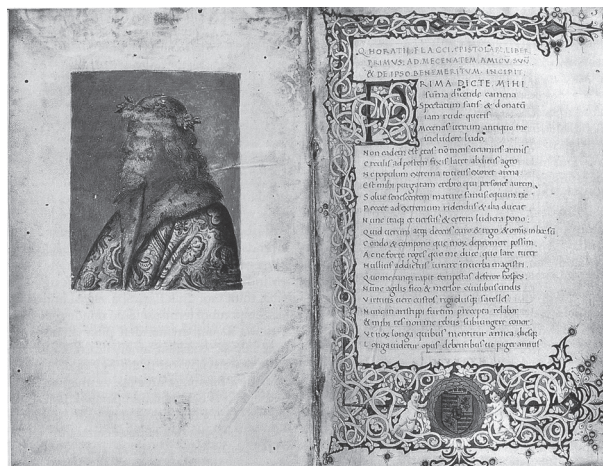 Q. HORATII. FLACCI. EPISTOLAR. LIBER.
PRIMUS. AD. MECENATEM. AMICV. SVV
& DE. IPSO. BENEMERITUM. INCIPIT.
PRIMA DICTE MIHI
summa dicende camena
Spectatum satis & donatū
iam rude queris
Mecenas iterum antiquo me
includere ludo
Non eadem est etas nō mens veianius armis
Herculis ad postem fixis latet abditus agro
Ne populum extrema totiens exoret arena
Est mihi purgatam crebro qui personet aurem
Solue senescentem mature sanus equum ne
Peccet ad extremum ridendus & ilia ducat
Nunc itaq et uersus & cetera ludicra pono
Quid uerum atq decens curo & rogo & omīs in hoc sū
Condo & compono que mox depromere possim
Ac ne forte roges quo me duce quo lare tuter
Nullius addictus iurare in uerba magistri
Quo me cunq rapit tempestas deferor hospes
Nunc agilis fio & mersor ciuilibus undis
Virtutis uere custos rigidusq satelles
Nunc in aristippi furtim precepta relabor
& mihi res non me rebus subiungere conor
Vt nox longa quibus mentitur amica diesq
Longa uidetur opus debentibus ut piger annus